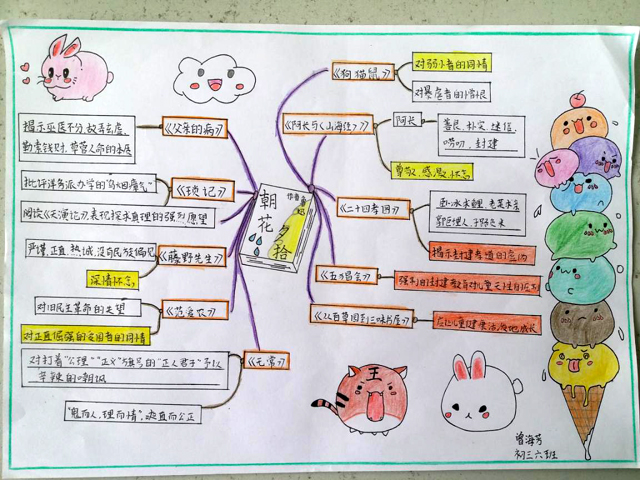 朝花夕拾
作者鲁迅
《狗猫鼠》
对弱小者的同情
对暴虐者的憎恨
《阿长与《山海经》》
阿长
善良、朴实、迷信、
唠叨、封建
尊敬、感激、怀念
《二十四孝图》
卧冰求鲤、老莱娱亲
郭巨埋儿、子路负米
《五猖会》
强制的封建教育对儿童天性的压制
《从百草园到三味书屋》
《父亲的病》
揭示巫医不分、故弄玄虚、
勒索钱财、草菅人命的本质
《琐记》
批评洋务派办学的"乌烟瘴气"
阅读《天演论》,表现探求真理的强烈愿望
《藤野先生》
严谨、正直、热诚、没有民族偏见
深情怀念
《范爱农》
对旧民主革命的失望
对正直倔强的爱国者的同情
《无常》
对打着"公理""正义"旗号的"正人君子"予以
辛辣的嘲讽
"鬼而人,理而情",爽直而公正
王
曾海芳
初三六班